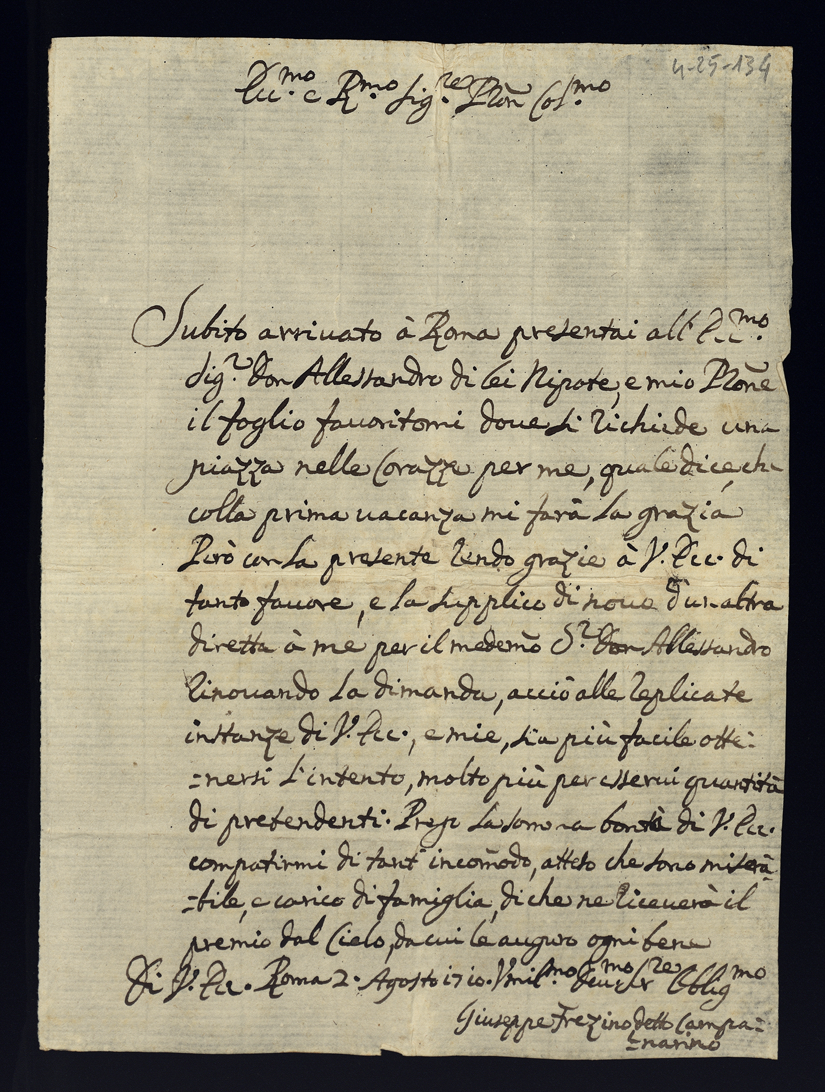 4-25-134
Ecc.mo e R.mo Sig.re Pron Col.mo
Subito arrivato à Roma presentai all' Ecc.mo
Sig.r Don Allessandro di lei Nipote, e mio Prone
il foglio favoritomi dove si richiede una
piazza nelle Corazze per me, quale dice, che
colla prima vacanza mi farà la grazia
Però con la presente rendo grazie à V. Ecc. di
tanto favore, e la supplico di novo d'un altra
diretta à me per il medemo S.r Don Allessandro
rinovando la dimanda, acciò alle replicate
instanze di V. Ecc., e mie, sia più facile otte=
=nersi l'intento, molto più per esservi quantità
di pretendenti. Prego la somma bontà di V. Ecc.
compatirmi di tant' incomodo, atteso che sono miserà=
=bile, e carico di famiglia, di che ne riceverà il
premio dal Cielo, da cui le auguro ogni bene
Di V. Ecc. Roma 2. Agosto 1710. Vmil.mo Deu.mo Ser.re Obblig.mo
Giuseppe Frezino detto Campa=
=narino